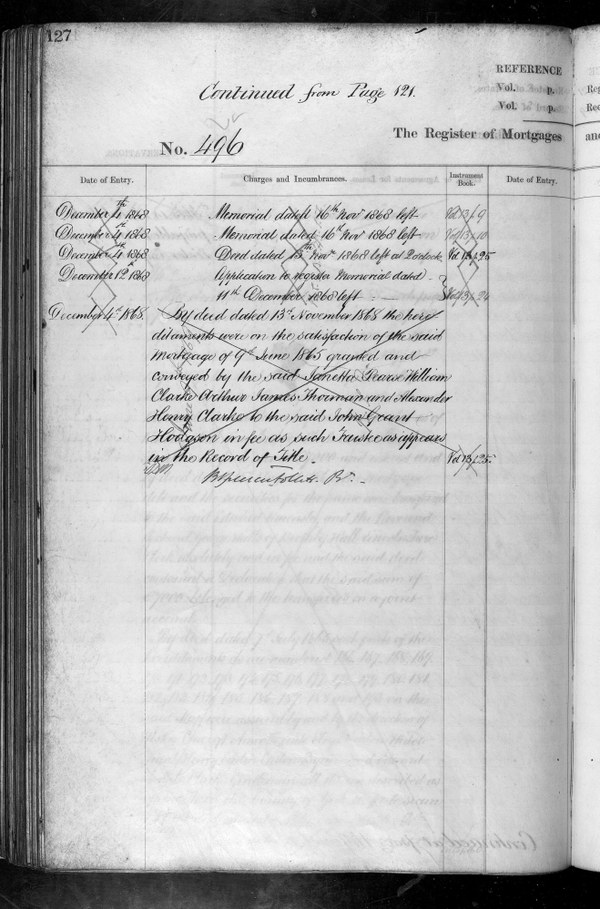 127
REFERENCE
Continued from Page 121.
Vol. p.
Vol. p.
No. 496
The Register of Mortgages
Date of Entry.
Charges and Incumbrances.
Instrument Book.
Date of Entry.
December 4th 1868 Memorial dated 16th Novr 1868 left Vol 13/9
December 4th 1868 Memorial dated 16th Novr 1868 left Vol 13/10
December 4th 1868 Deed dated 13th Novr 1868 left at Vol 13/25
December 12th 1868 Application to register Memorial dated
11th December 1868 left
December 4th 1868. By deed dated 13th November 1868 the here
ditaments were on the satisfaction of the said
Mortgage of 9th June 1865 granted and
conveyed by the said Janetta Pearse William
Clarke Arthur James Thorman and Alexander
Henry Clarke to the said John Grant
Hodgson in fee as such Trustee as appears
in the Record of Title. Vol 13/25.